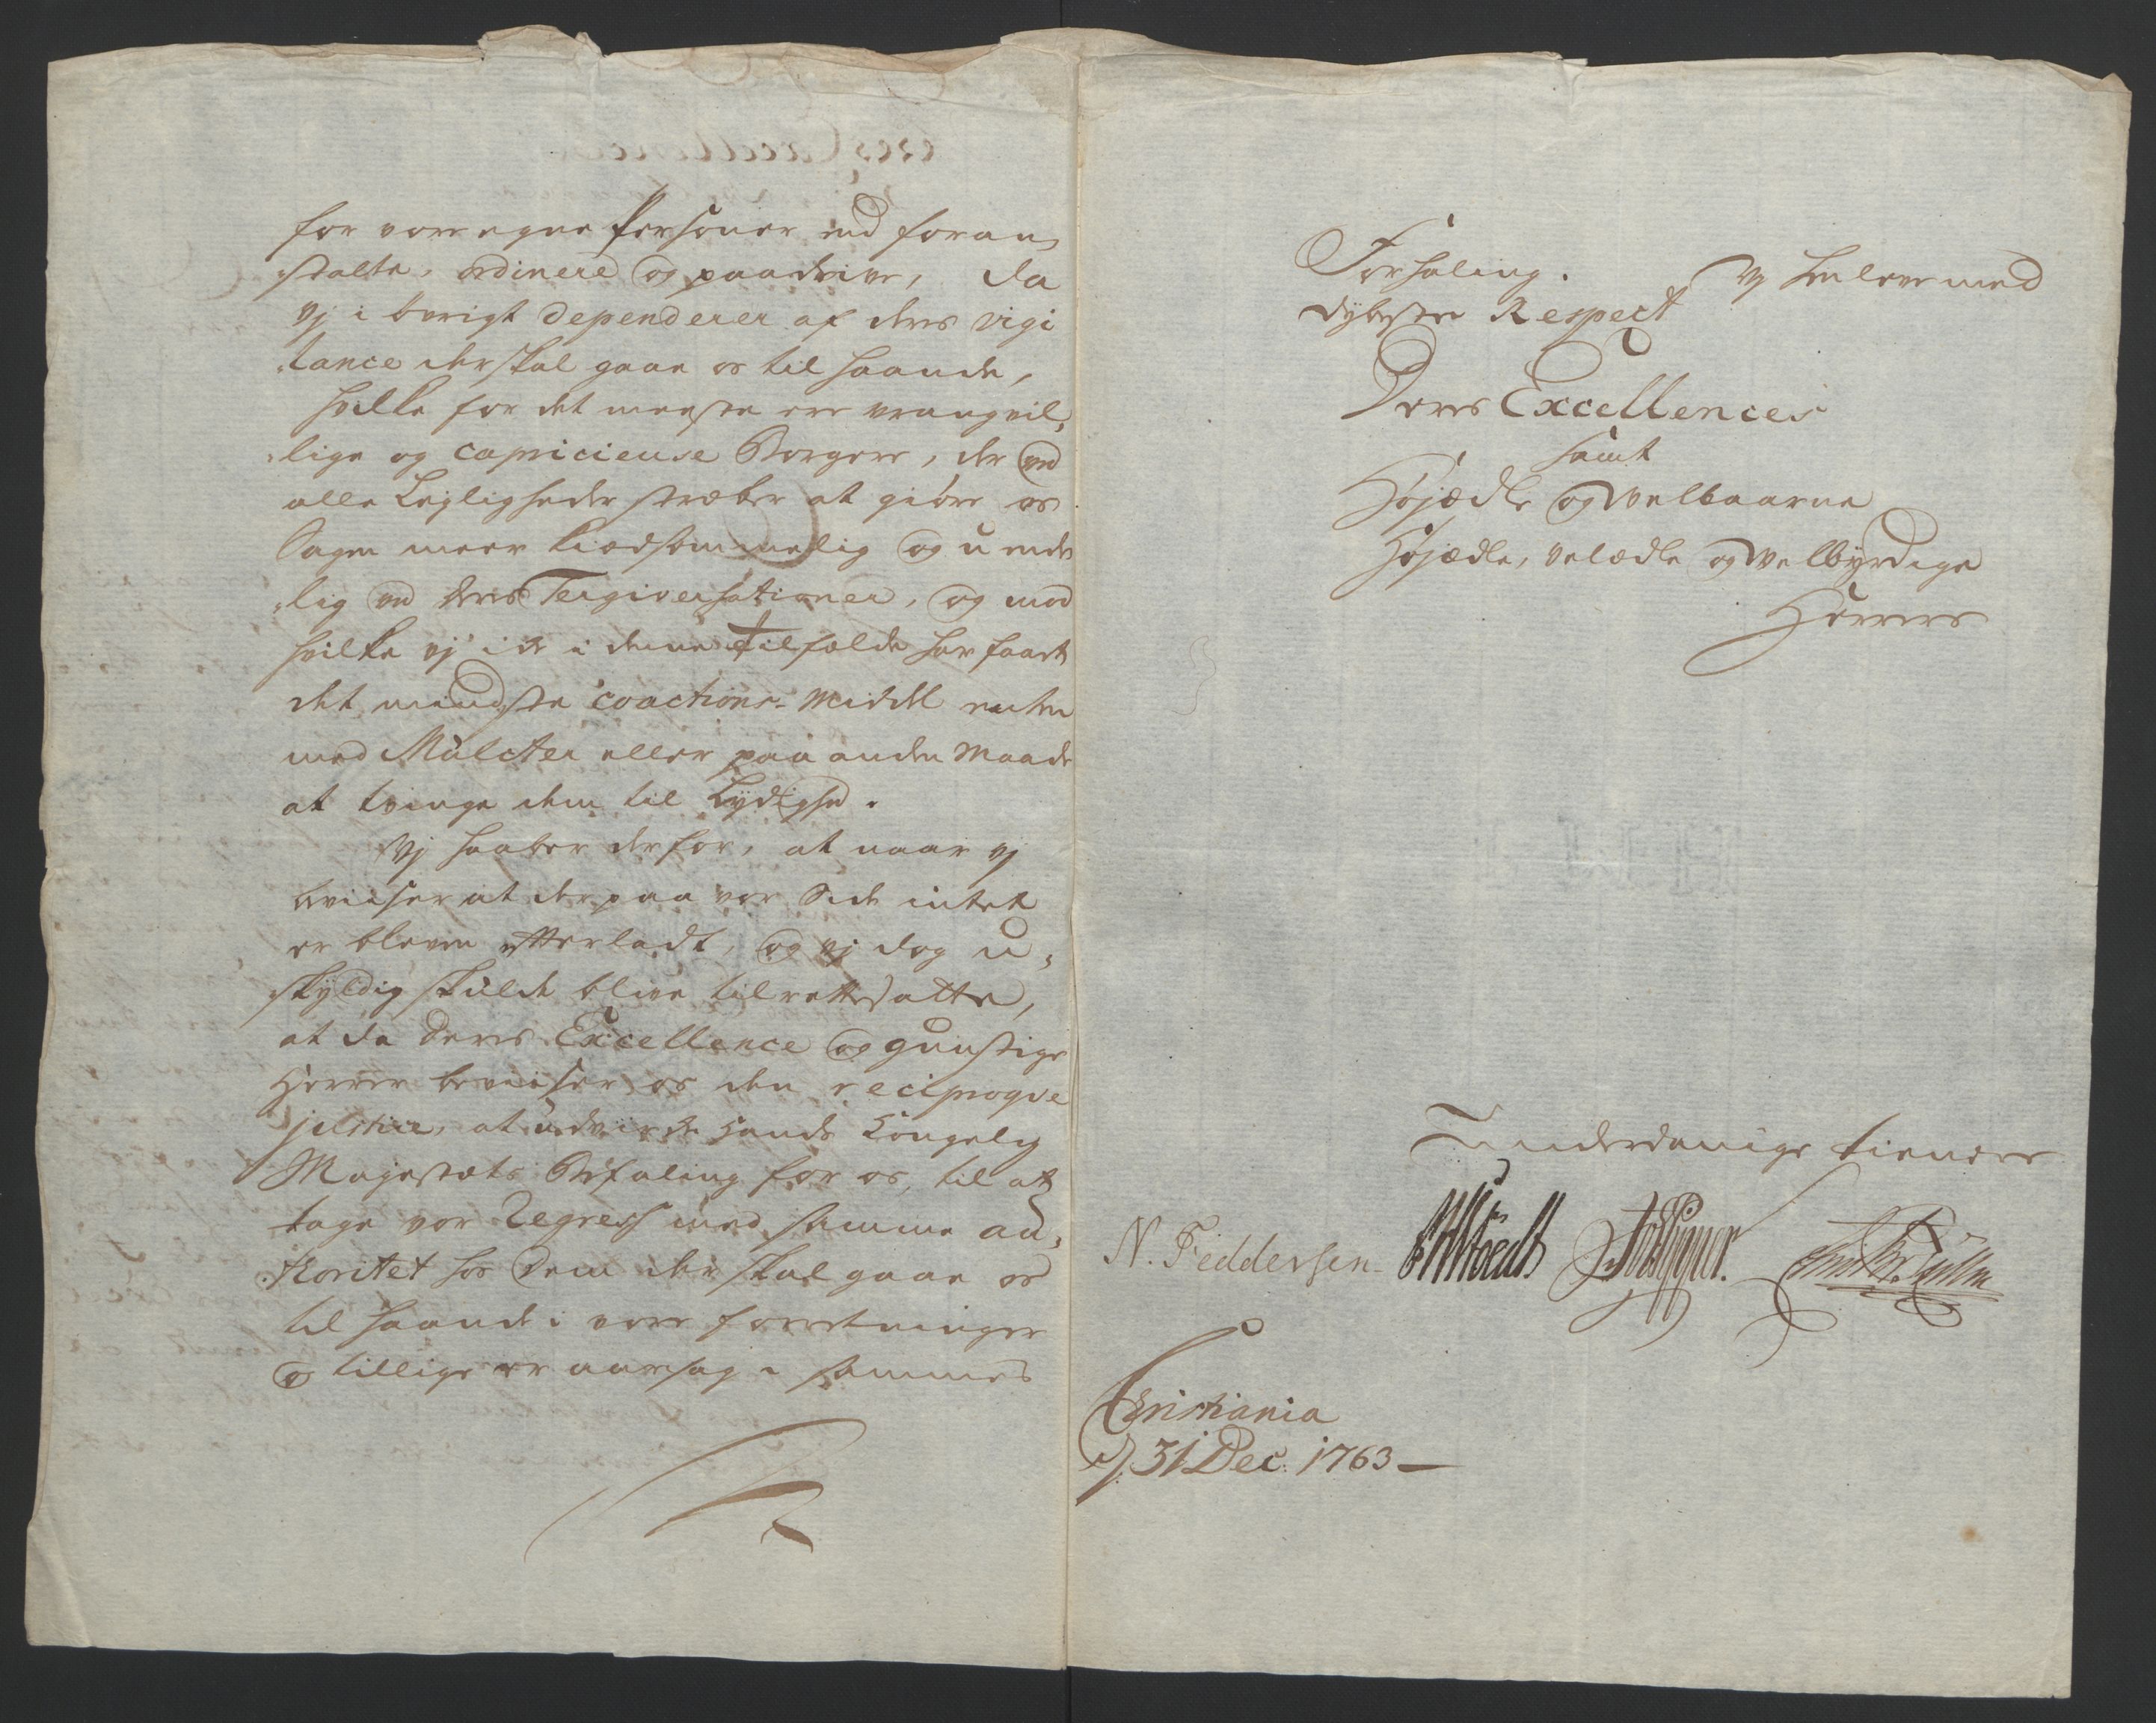 for vore egne Personer end foran,
stalte, ordinere og paadrive, da
vj i övrigt dependerer af deres vigi
lance der skal gaae os til haande,
hvilke for det meeste ere vrangvil,
lige og capricieuse Borgere, der ved
alle Leyligheder stræber at giöre os
Sagen meer kiædsommelig og uende
lig ved deres Tergiversationer, og mod
hvilke vj icke i denne tilfælde har faaet
det mindste coactions-Middel enten
med Mulcter eller paa anden Maade
at tvinge dem til Lydighed.
Vj haaber derfor, at naar vj
beviiser at der paa vor Side intet
er bleven efterladt, og vj dog u,
skyldig skulde blive tilrettesatte,
at da Deres Excellence og gunstige
Herrer beviiser os den reciproqve
justice, at udvircke Hands Kongelig
Majestæts Befaling for os, til at
tage vor Regress med samme au,
thoritet hos Dem der skal gaae os
til haande i vore forretninger
og tillige er aarsag i sammes
Forhaling. Vj henleve med
dybeste Respect
Deres Excellences
samt
Höjædle og Velbaarne
Höjædle, velædle og Velbyrdige
Herrers
Underdanige tienere
N. Feddersen
Christiania
d. 31 Dec: 1763